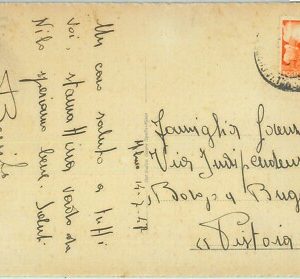 Un caro saluto a tutti
voi, stamattina vado da
Nilo speriamo bene. Saluti
Famiglia
Via Indipenden
Borgo a Bugg
Pistoia